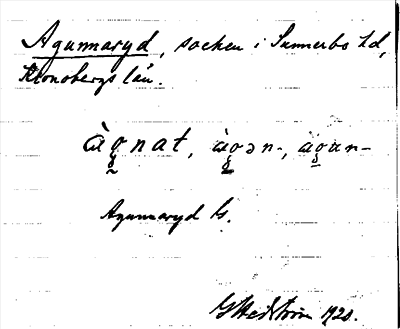 Agunnaryd, socken i Sunnerbo hd,
Kronobergs län.
Agunnaryd ls.
GHedström 1920.